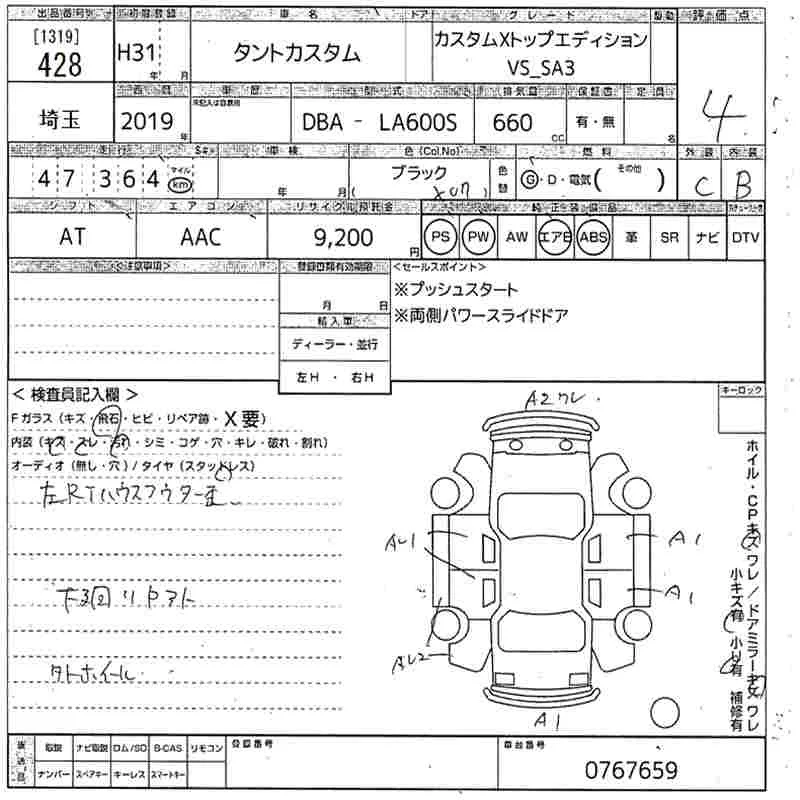 出品番号 初度登録 車名 ドア グレード 駆動 評価点
[1319]
428
H31 年 月
タントカスタム
カスタムXトップエディション
VS_SA3
4
車歴 型式 排気量 保証書 定員
埼玉
2019 年
未記入は自家用
DBA - LA600S
660 cc
有・無
名
走行 Sキー 車検 色(Col.No) 燃料 外装 内装
47 364 マイル km
年 月
ブラック
( X07 )
色替
G・D・電気( その他 )
C B
シフト エアコン リサイクル預託金 純正装備品
AT
AAC
9,200 円
PS PW AW エアB ABS 革 SR ナビ DTV
<注意事項>
登録書類有効期限
月 日
輸入車
ディーラー・並行
左H ・ 右H
<セールスポイント>
※プッシュスタート
※両側パワースライドドア
<検査員記入欄>
Fガラス(キズ・飛石・ヒビ・リペア跡・X要)
内装(キズ・スレ・汚れ・シミ・コゲ・穴・キレ・破れ・割れ)
オーディオ(無し・穴)/タイヤ(スタッドレス)
下回リ
ホイール
A2ワレ
A1
A1
A1
キーロック
ホイル・CPキズワレ/ドアミラーキズワレ
小キズ有 小凹有 補修有
後送品
取説 ナビ取説 ロム/SD B-CAS リモコン
ナンバー スペアキー キーレス スマートキー
登録番号
車台番号
0767659